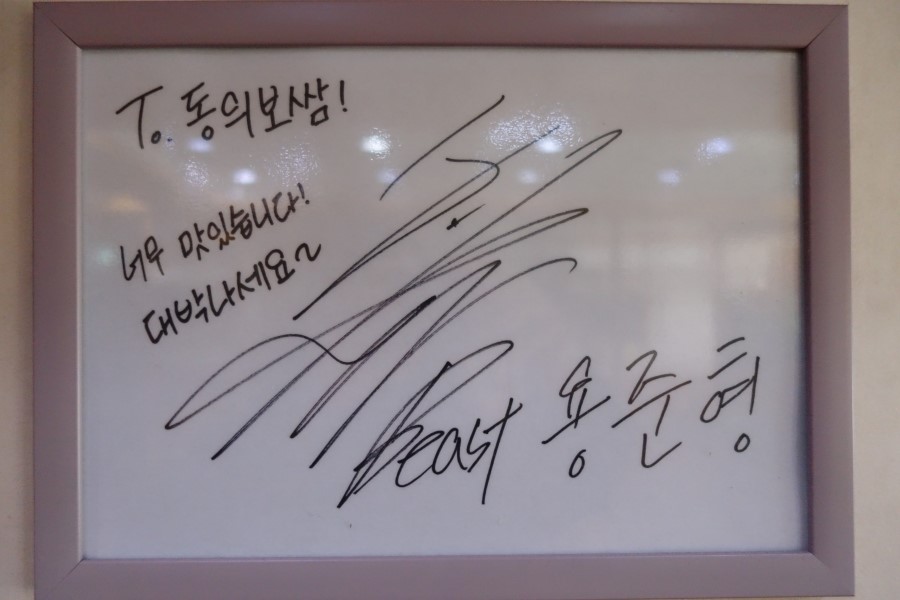 To. 동의보쌈!
너무 맛있습니다!
대박나세요~
Beast 용준형